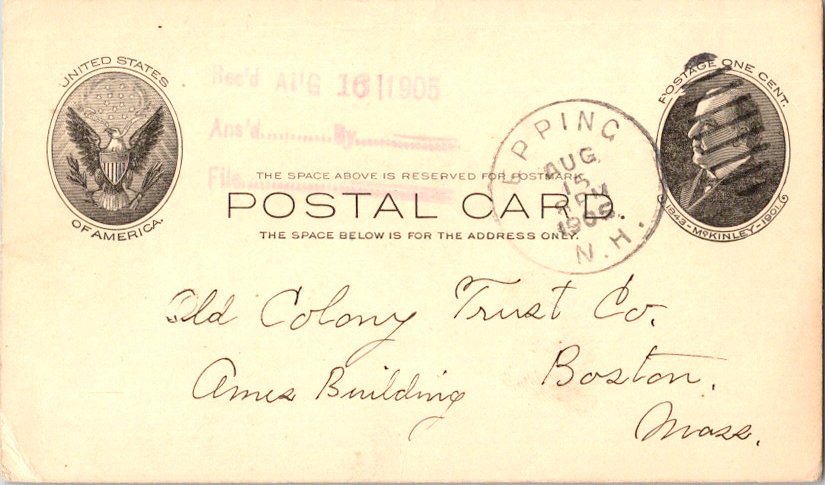 UNITED STATES
OF AMERICA.
Rec'd AUG 16 1905
Ans'd............By................
File................
THE SPACE ABOVE IS RESERVED FOR POSTMARK.
POSTAL CARD.
THE SPACE BELOW IS FOR THE ADDRESS ONLY.
EPPING
AUG
15
PM
1905
N.H.
POSTAGE ONE CENT.
1843-McKINLEY-1901.
Old Colony Trust Co.
Ames Building Boston,
Mass.